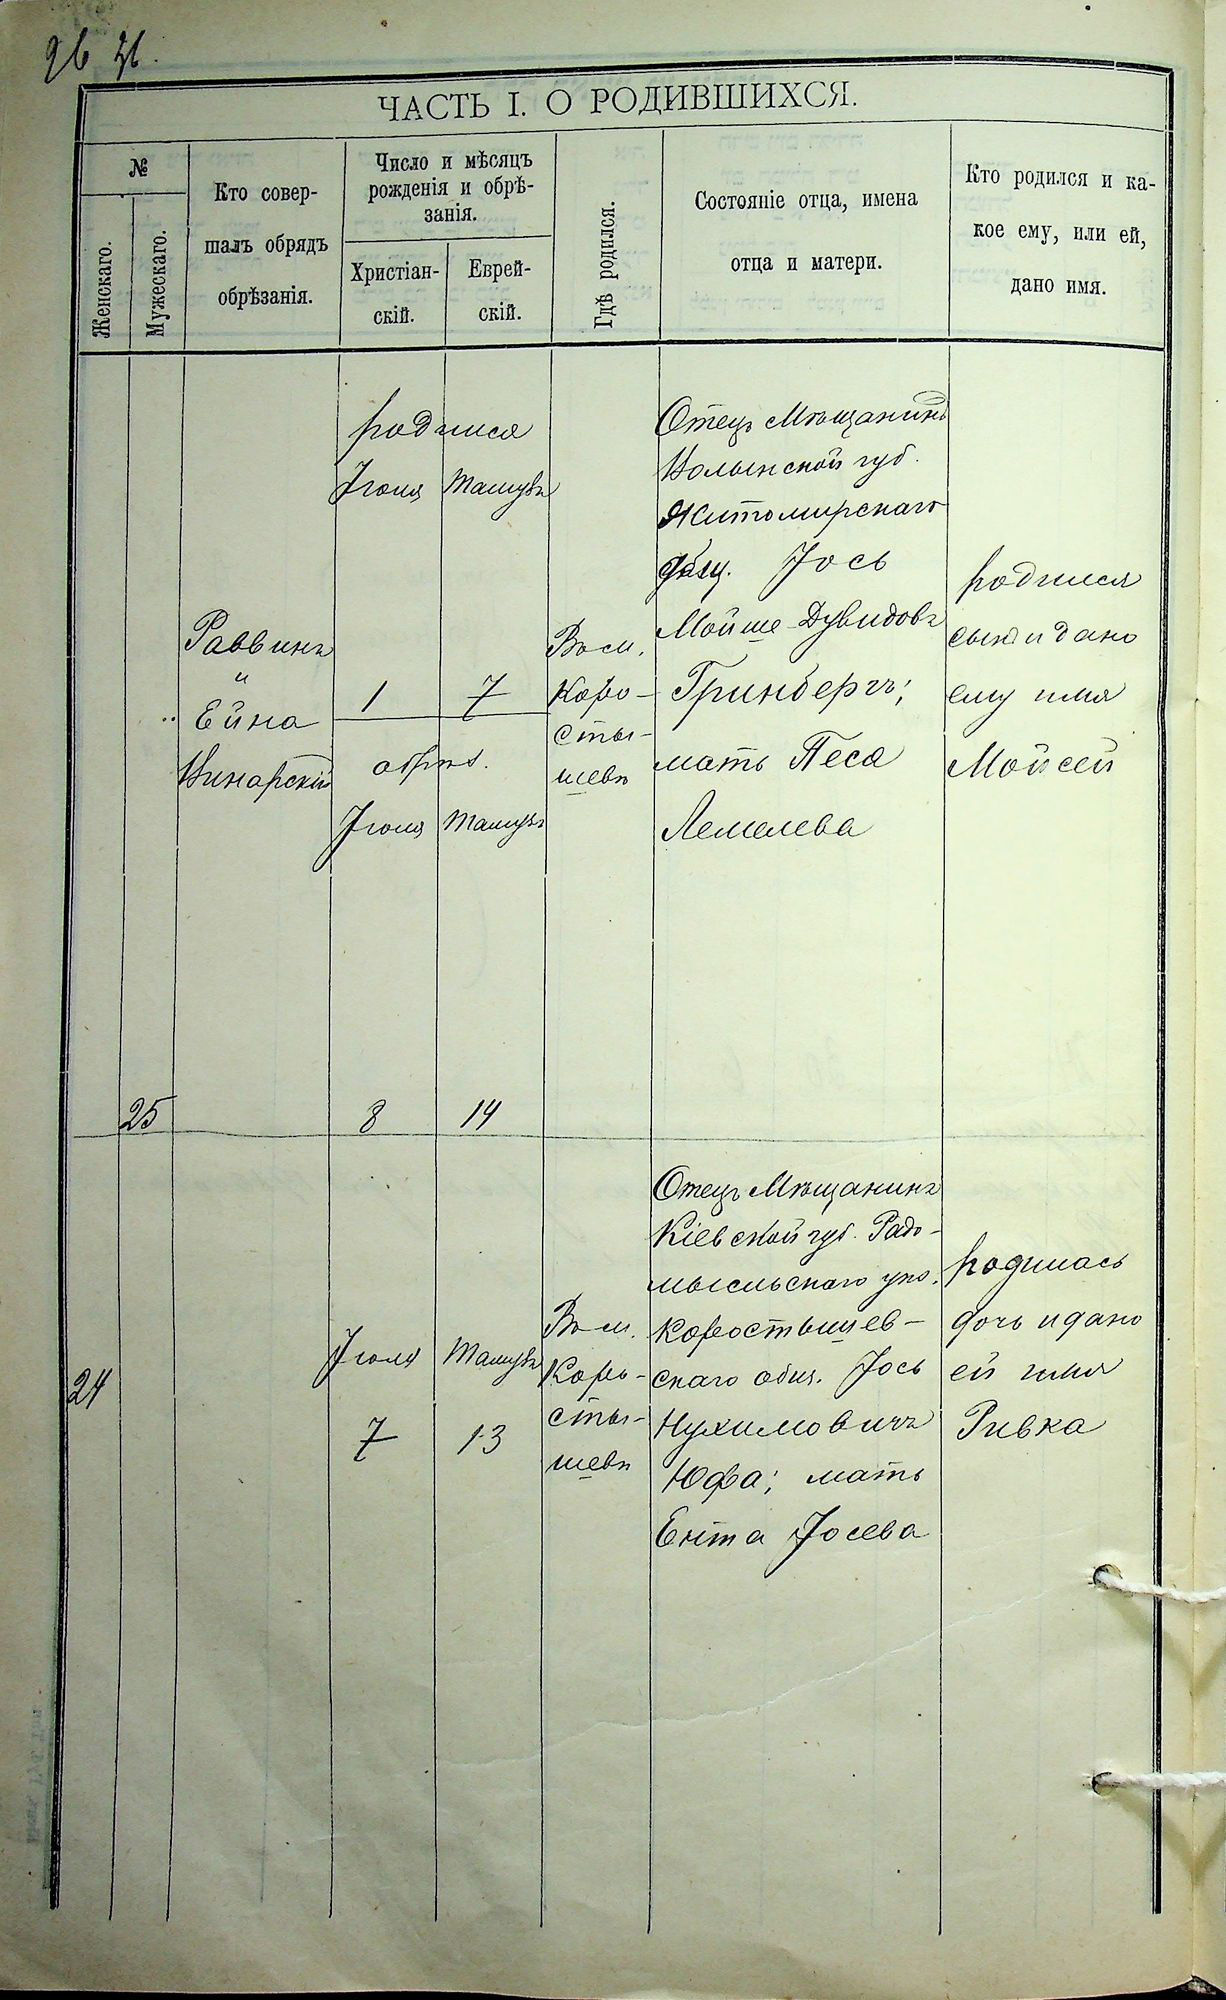 ЧАСТЬ I. О РОДИВШИХСЯ.
№
Женскаго.
Мужескаго.
Кто совер-
шалъ обрядъ
обрѣзанія.
Число и мѣсяцъ
рожденія и обрѣ-
занія.
Христіан-
скій.
Еврей-
скій.
Гдѣ родился.
Состояніе отца, имена
отца и матери.
Кто родился и ка-
кое ему, или ей,
дано имя.
25
Раввинъ
и
Ейна
Винарскій
родился
Іюля Тамузъ
1 7
обрѣз.
Іюля Тамузъ
8 14
Въ м.
Коро-
сты-
шевѣ
Отецъ Мѣщанинъ
Волынской губ.
Житомирскаго
общ. Іось
Мойше-Дувидовъ
Гринбергъ;
мать Песя
Лемелева
родился
сынъ и дано
ему имя
Мойсей
24
Іюля Тамузъ
7 13
Въ м.
Коро-
сты-
шевѣ
Отецъ Мѣщанинъ
Кіевской губ. Радо-
мысльскаго уѣз.
Коростышев-
скаго общ. Іось
Нухимовичъ
Юфа; мать
Ента Іосева
родилась
дочь и дано
ей имя
Ривка